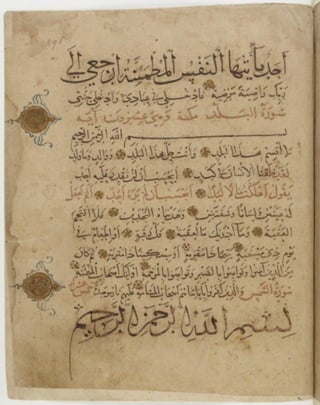 احد يايتها النفس المطمئنة ارجعي الى
ربك راضية مرضية فادخلي في عبادي وادخلي جنتي
سورة البلد مكية وهي عشرون اية
بسم الله الرحمن الرحيم
لا اقسم بهذا البلد وانت حل بهذا البلد ووالد وما ولد
لقد خلقنا الانسان في كبد ايحسب ان لن يقدر عليه احد
يقول اهلكت مالا لبدا ايحسب ان لم يره احد الم نجعل
له عينين ولسانا وشفتين وهديناه النجدين فلا اقتحم
العقبة وما ادريك ما العقبة فك رقبة او اطعام في
يوم ذي مسغبة يتيما ذا مقربة او مسكينا ذا متربة ثم كان
من الذين امنوا وتواصوا بالصبر وتواصوا بالمرحمة اولئك اصحاب الميمنة
سورة الشمس والذين كفروا باياتنا هم اصحاب المشئمة عليهم نار موصدة
بسم الله الرحمن الرحيم